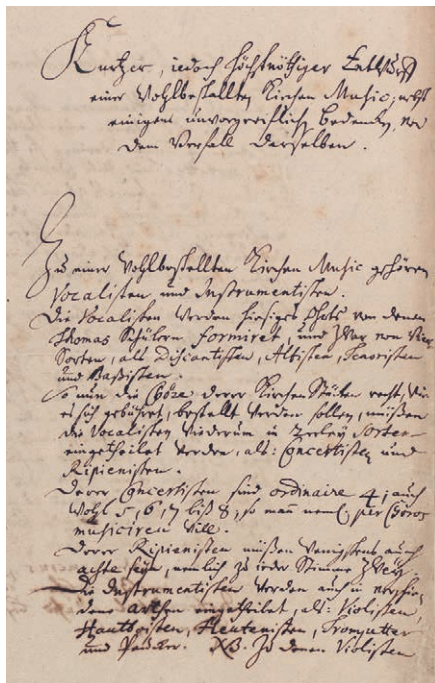 Kurtzer, iedoch höchstnöthiger Entwurff
einer Wohlbestallten Kirchen Music; nebst
einigem unvorgreiflichen Bedencken von
dem Verfall derselben.
Zu einer Wohlbestellten Kirchen Music gehören
Vocalisten und Instrumentisten.
Die Vocalisten werden hiesiges Ohrts von denen
Thomas Schülern formiret, und zwar von vier
Sorten, als Discantisten, Altisten, Tenoristen
und Baßisten.
So nun die Chöre derer Kirchen Stücken recht, wie
es sich gebühret, bestellt werden sollen, müßen
die Vocalisten wiederum in 2erley Sorten
eingetheilet werden, als: Concertisten und
Ripienisten.
Derer Concertisten sind ordinaire 4; auch
wohl 5, 6, 7 biß 8; so mann nemlich per Choros
musiciren will.
Derer Ripienisten müßen wenigstens auch
achte seyn, nemlich zu ieder Stimme zwey.
Die Instrumentisten werden auch in verschie-
dene arthen eingetheilet, als: Violisten,
Hautboisten, Fleutenisten, Trompetter
und Paucker. NB. Zu denen Violisten